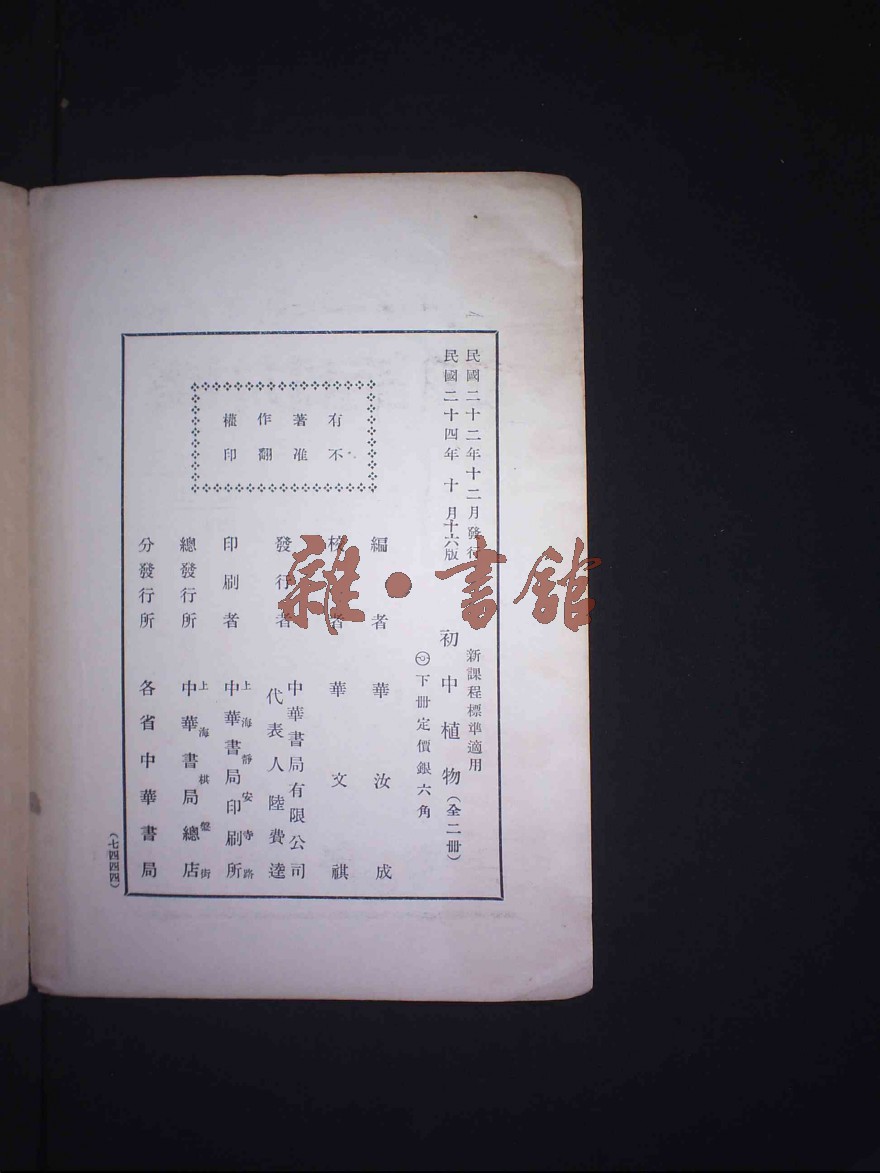 民國二十二年十二月發行
民國二十四年十月十六版
新課程標準適用
初中植物（全二冊）
下冊定價銀六角
有著作權
不准翻印
編者 華汝成
校者 華文祺
發行者 中華書局有限公司
代表人 陸費逵
印刷者 上海靜安寺路
中華書局印刷所
總發行所 上海棋盤街
中華書局總店
分發行所 各省中華書局
（七四四四）
雜·書館